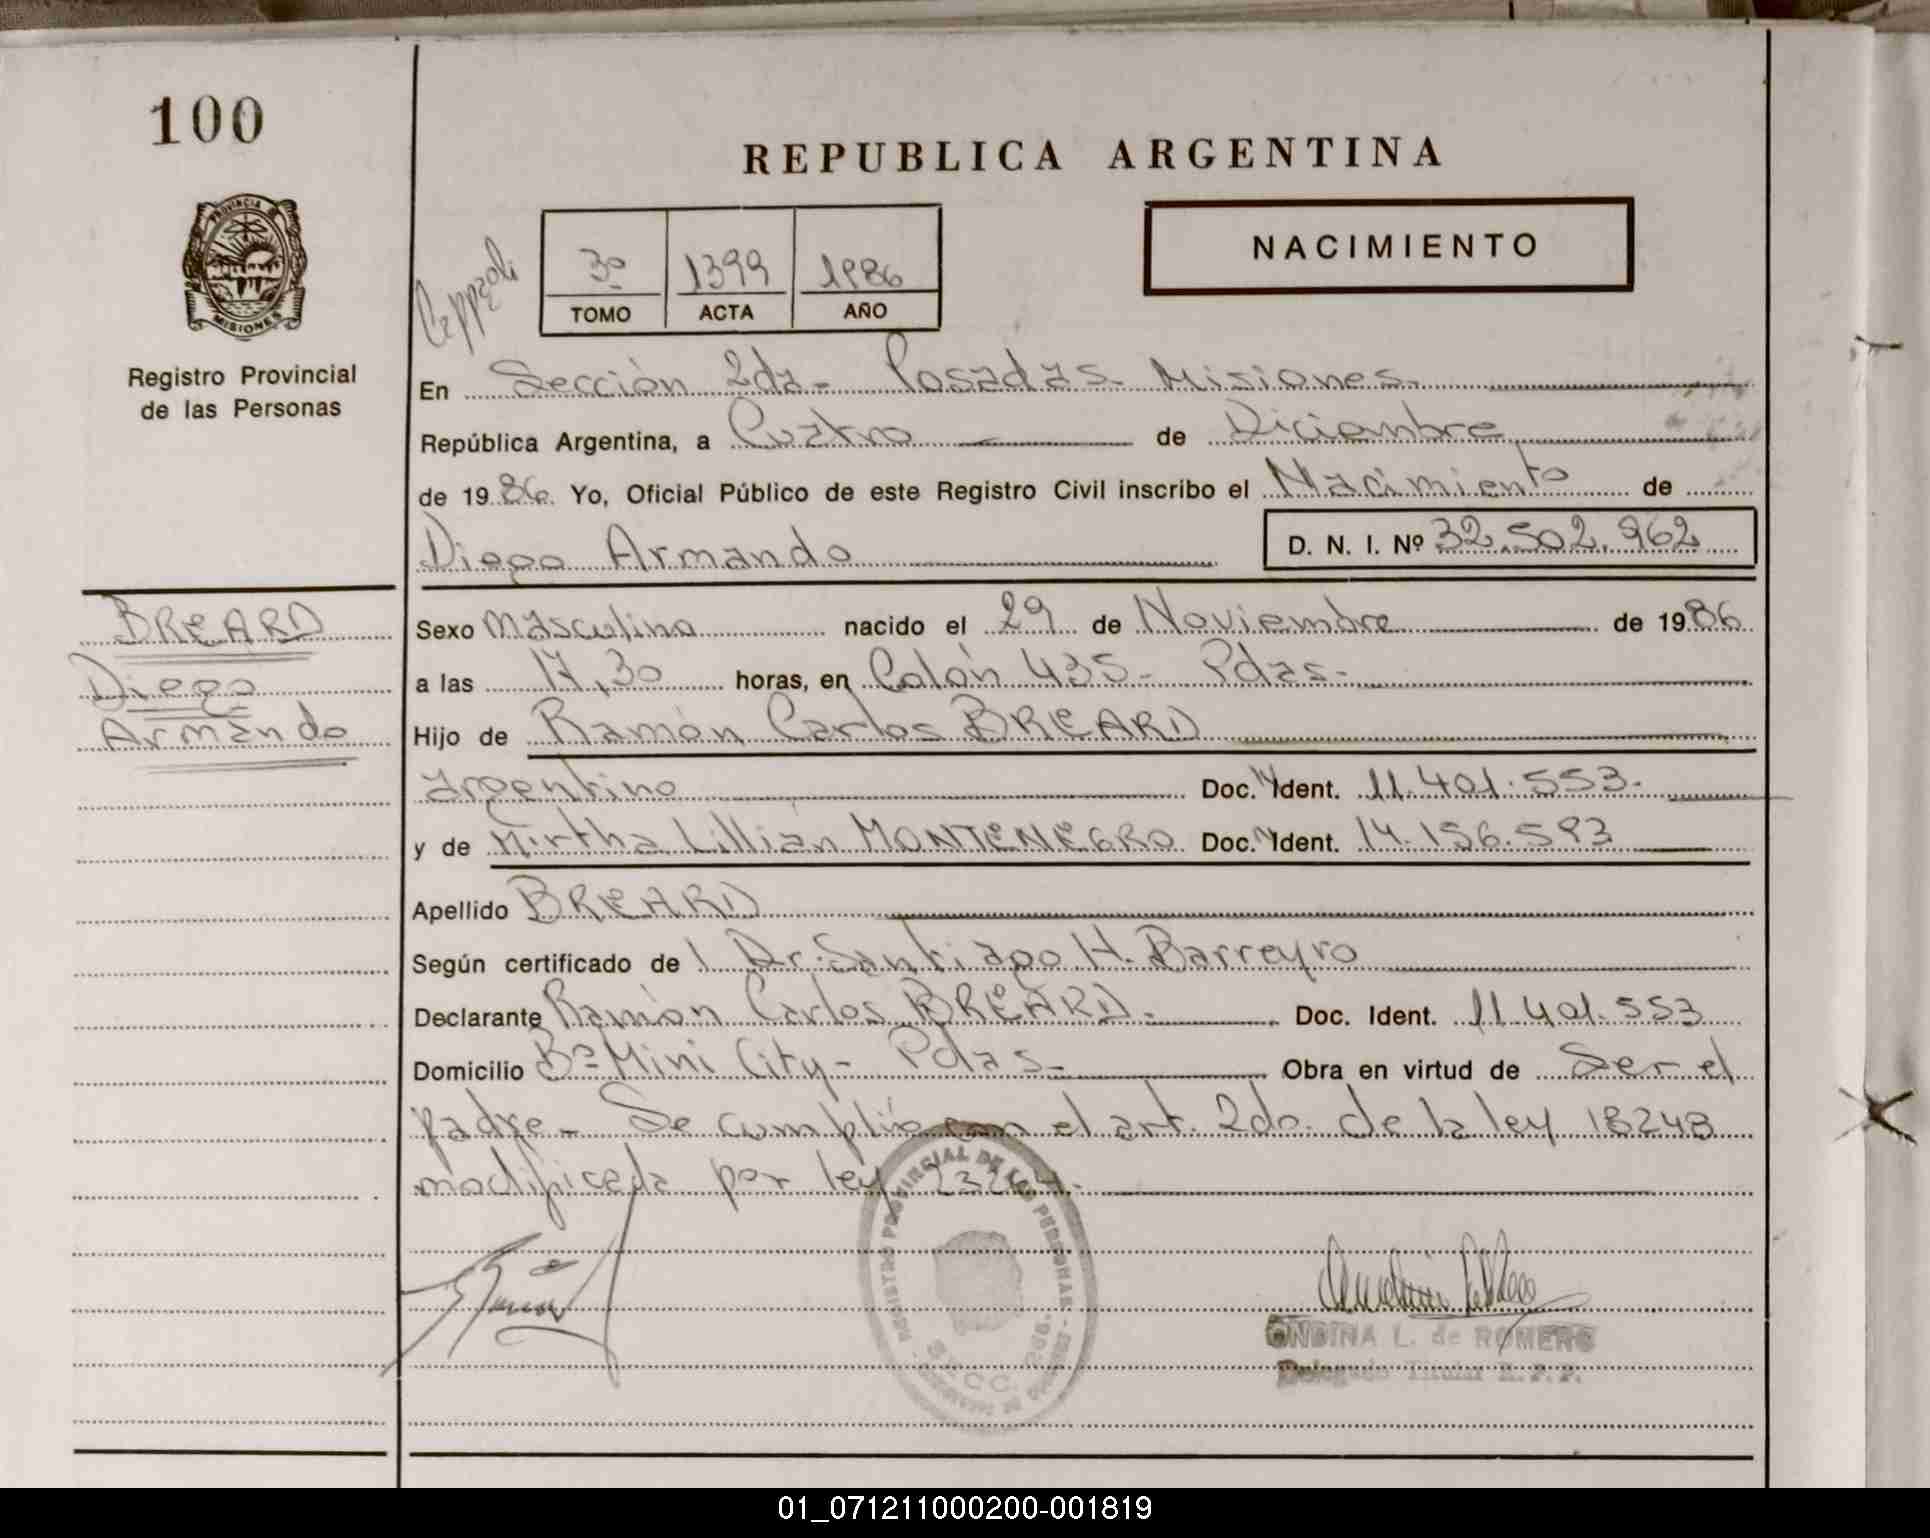 100
PROVINCIA DE
MISIONES
Registro Provincial
de las Personas
BREARD
Diego
Armando
REPUBLICA ARGENTINA
3º 1399 1986
TOMO ACTA AÑO
NACIMIENTO
En Sección 2da- Posadas- Misiones.
República Argentina, a Cuatro de Diciembre
de 1986. Yo, Oficial Público de este Registro Civil inscribo el Nacimiento de
Diego Armando D. N. I. Nº 32.502.962
Sexo Masculino nacido el 29 de Noviembre de 1986
a las 17,30 horas, en Colón 435- Pdas-
Hijo de Ramón Carlos BREARD
argentino Doc. Ident. 11.401.553.
y de Mirtha Lillian MONTENEGRO Doc. Ident. 14.156.593
Apellido BREARD
Según certificado de l Dr. Santiago H. Barreyro
Declarante Ramón Carlos BREARD. Doc. Ident. 11.401.553
Domicilio Bº Mini City- Pdas- Obra en virtud de Ser el
padre- Se cumplió con el art. 2do. de la ley 18248
modificada por ley 23264.
REGISTRO PROVINCIAL DE LAS PERSONAS
SECC. 2da.
ONDINA L. de ROMERO
Delegado Titular R. P. P.
01_071211000200-001819